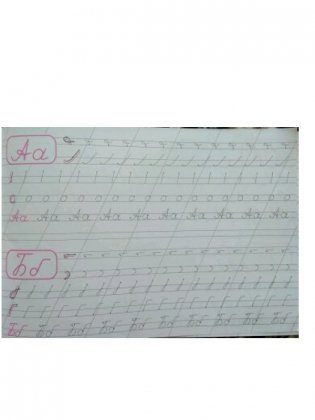 Аа
Аа Аа Аа Аа Аа Аа Аа Аа Аа
Бб
Бб Бб Бб Бб Бб Бб Бб Бб Бб